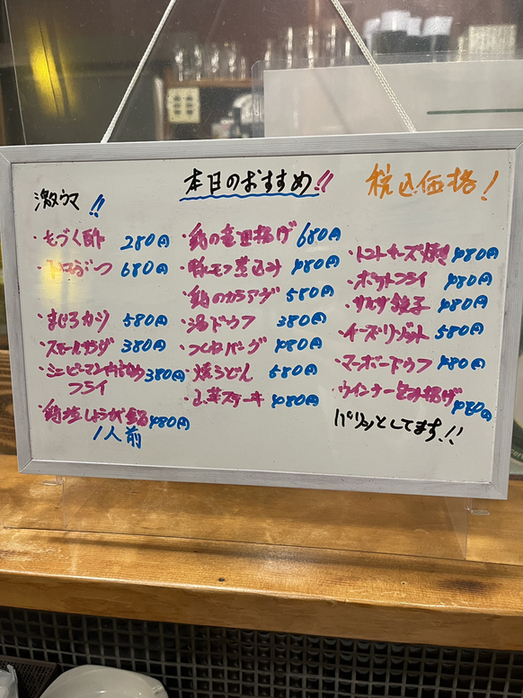 本日のおすすめ!!
税込価格!
激ウマ!!
・もづく酢 280円
680円
・まぐろカツ 580円
・スモールサラダ 380円
380円
フライ
しょうが 480円
1人前
・鶏の竜田揚げ 680円
・豚モツ煮込み 480円
・鶏のカラアゲ 580円
・湯ドウフ 380円
・つくねバーグ 480円
・焼うどん 580円
・山芋ステーキ 480円
・トマトチーズ焼 480円
・ポテトフライ 480円
480円
・チーズリゾット 580円
・マーボードウフ 480円
・ウインナー包み揚げ 480円
パリッとしてます!!